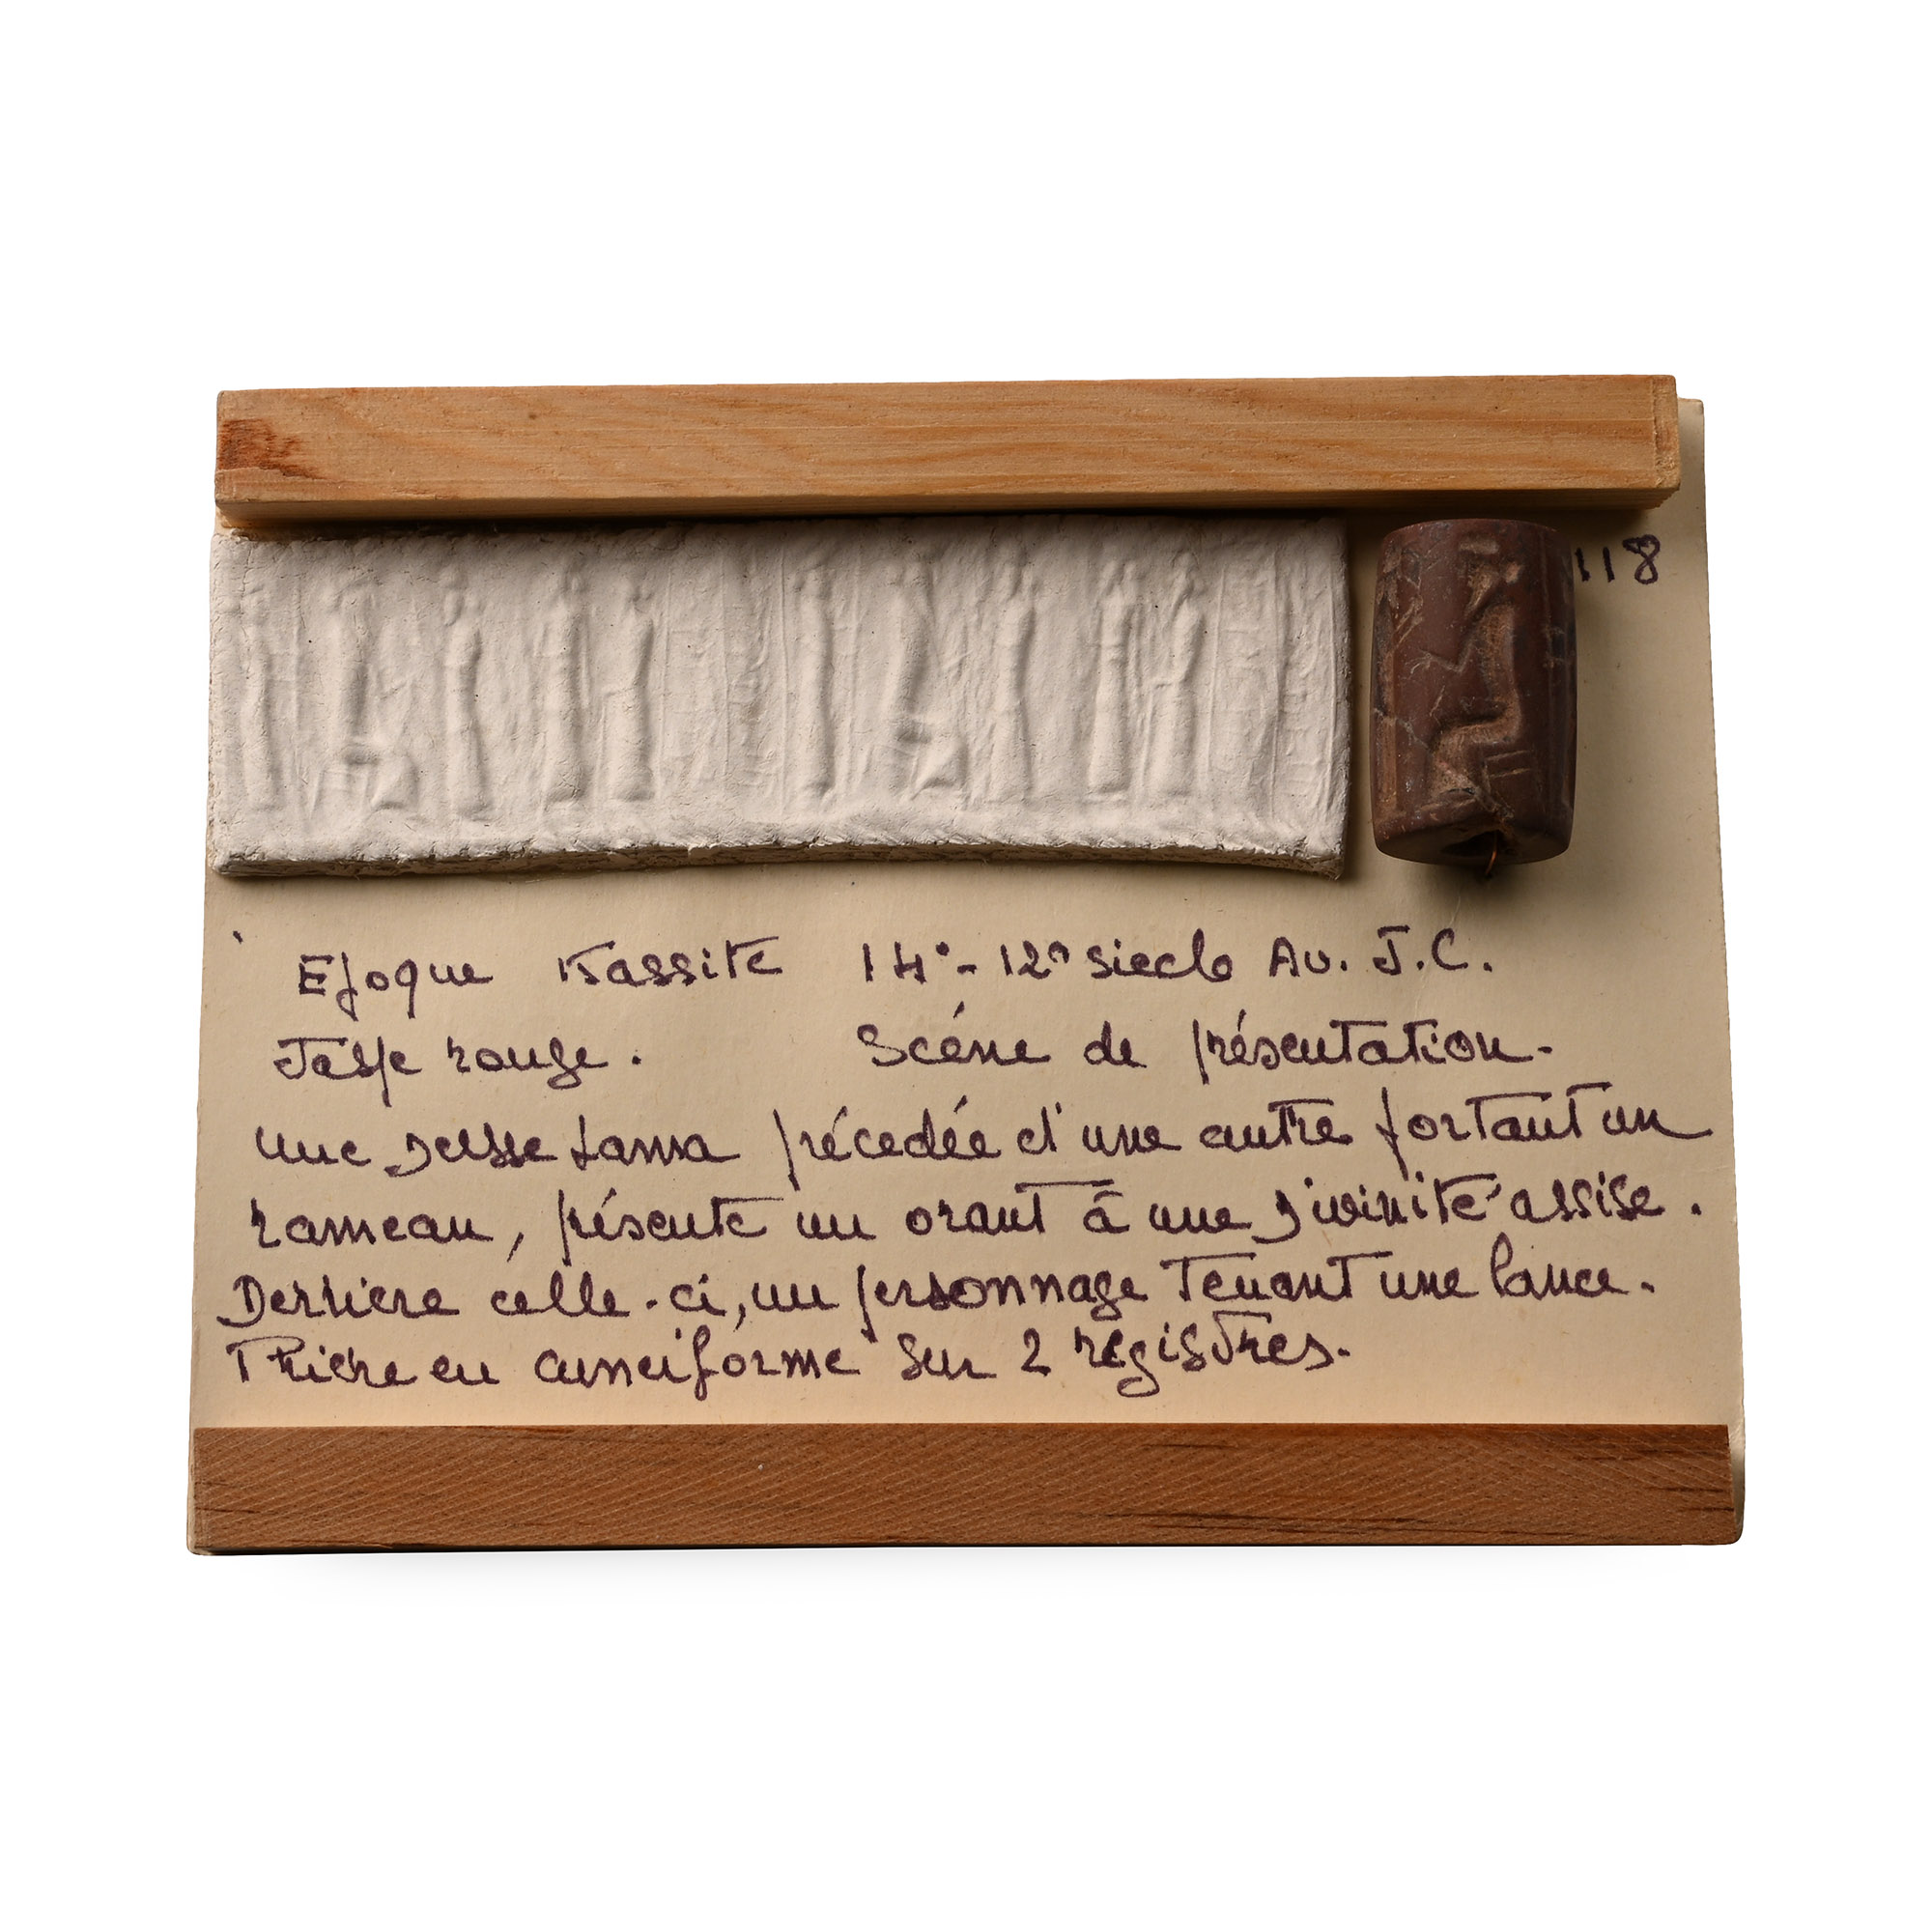 118
Epoque Kassite 14e - 12e siecle Av. J.C.
Jaspe rouge. Scéne de présentation.
une Deesse Lama précédée d'une autre portant un
rameau, présente un orant à une Divinité assise.
Derriere celle-ci, un personnage Tenant une lance.
Priere en cuneiforme sur 2 registres.